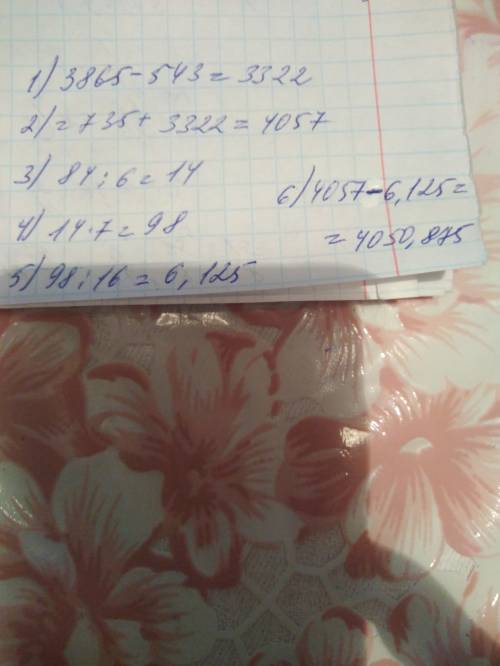 1) 3865 - 543 = 3322
2) = 735 + 3322 = 4057
3) 84 : 6 = 14
4) 14 · 7 = 98
5) 98 : 16 = 6,125
6) 4057 - 6,125 =
= 4050,875